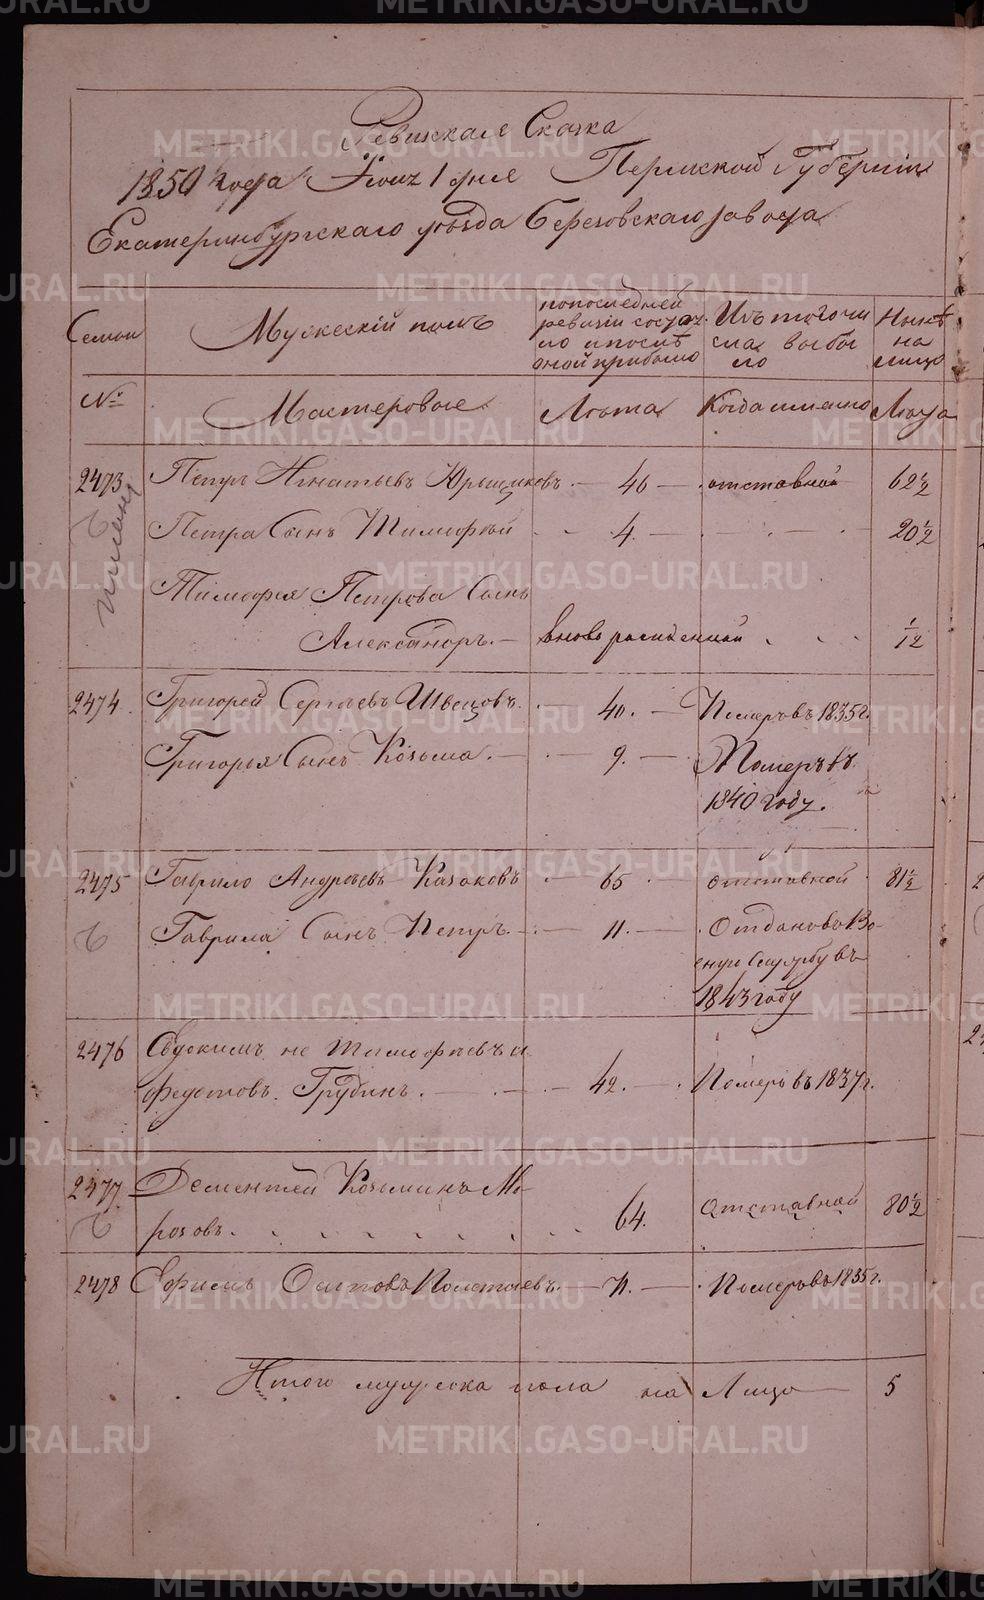 Ревижская Сказка
1850 года Іюня 1 дня Пермской Губерніи
Екатеринбургскаго уѣзда Березовскаго завода
Семьи
Мужескій полъ
попоследней
ревизіи состоя
ло ипослѣ
оной прибыло
Изъ того чи
сла выбы
ло
Нынѣ
на
лицо
№
Мастеровые
Лѣта
Когда именно
Лѣта
2473
Петръ Игнатьевъ Юрышковъ
46
отставной
62 1/2
Петра Сынъ Тимофей
4
20 1/2
Тимофея Петрова Сынъ
Александръ
вновь рожденной
1/12
2474
Григорей Сергѣевъ Швецовъ
40
Померъ въ 1835 г.
Григорья Сынъ Козьма
9
Померъ въ
1840 году.
2475
Гаврило Андреевъ Казаковъ
65
отставной
81 1/2
Гаврила Сынъ Петръ
11
Отданъ въ Во-
енную Службу въ
1843 году
2476
Евдокимъ не Тимофѣевъ а
Федотовъ Грубинъ
42
Померъ въ 1837 г.
2477
Дементей Козьминъ Мо-
розовъ
64
отставной
80 1/2
2478
Ефимъ Осиповъ Полетаевъ
71
Померъ въ 1835 г.
Итого мужеска пола на Лицо
5
METRIKI.GASO-URAL.RU